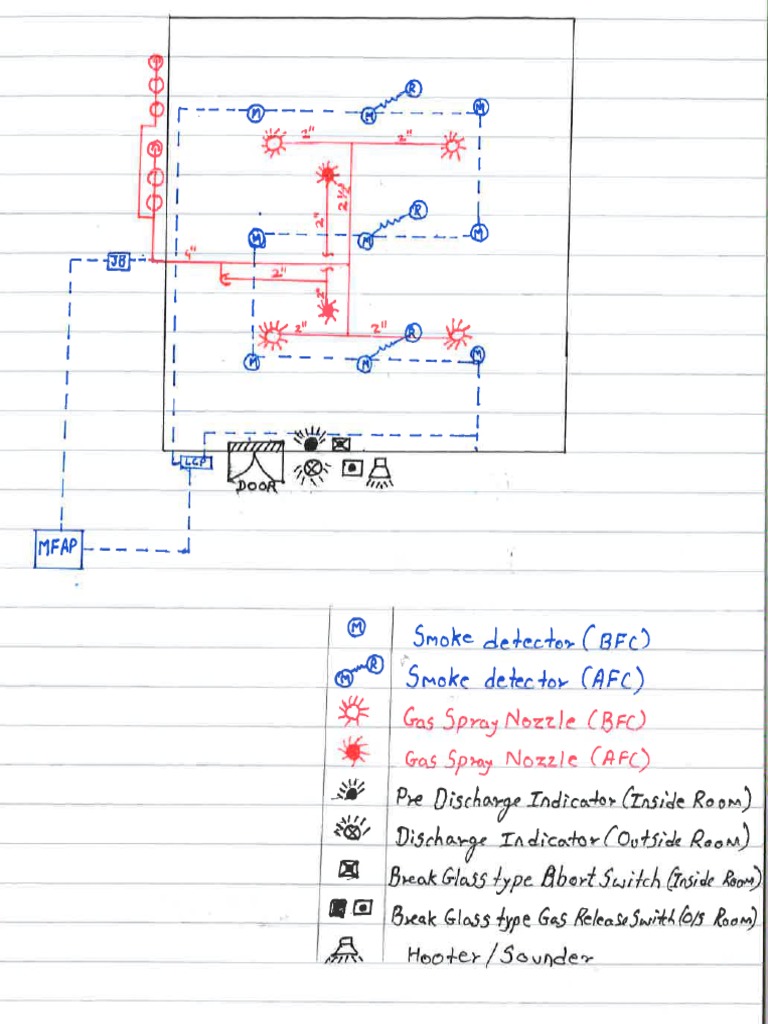 R
M M M
2" 2"
2" 2 1/2"
R
M M M
4"
JB
2"
2"
2" 2"
R
M M M
LCP
DOOR
MFAP
M Smoke detector (BFC)
M R Smoke detector (AFC)
Gas Spray Nozzle (BFC)
Gas Spray Nozzle (AFC)
Pre Discharge Indicator (Inside Room)
Discharge Indicator (Outside Room)
Break Glass type Abort Switch (Inside Room)
Break Glass type Gas Release Swith (O/S Room)
Hooter/Sounder